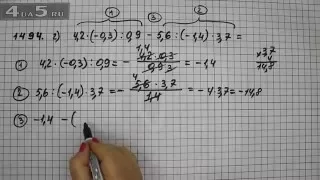 4a5.ru
① ③ ②
1494. 2) 4,2 : (-0,3) : 0,9 - 5,6 : (-1,4) · 3,7 =
① 4,2 : (-0,3) : 0,9 = - 4,2 · 0,3 / 0,9 3 = -1,4
1,4
× 3,7
4
14,8
② 5,6 : (-1,4) · 3,7 = - 5,6 · 3,7 / 1,4 = -4 · 3,7 = -14,8
4
③ -1,4 - (